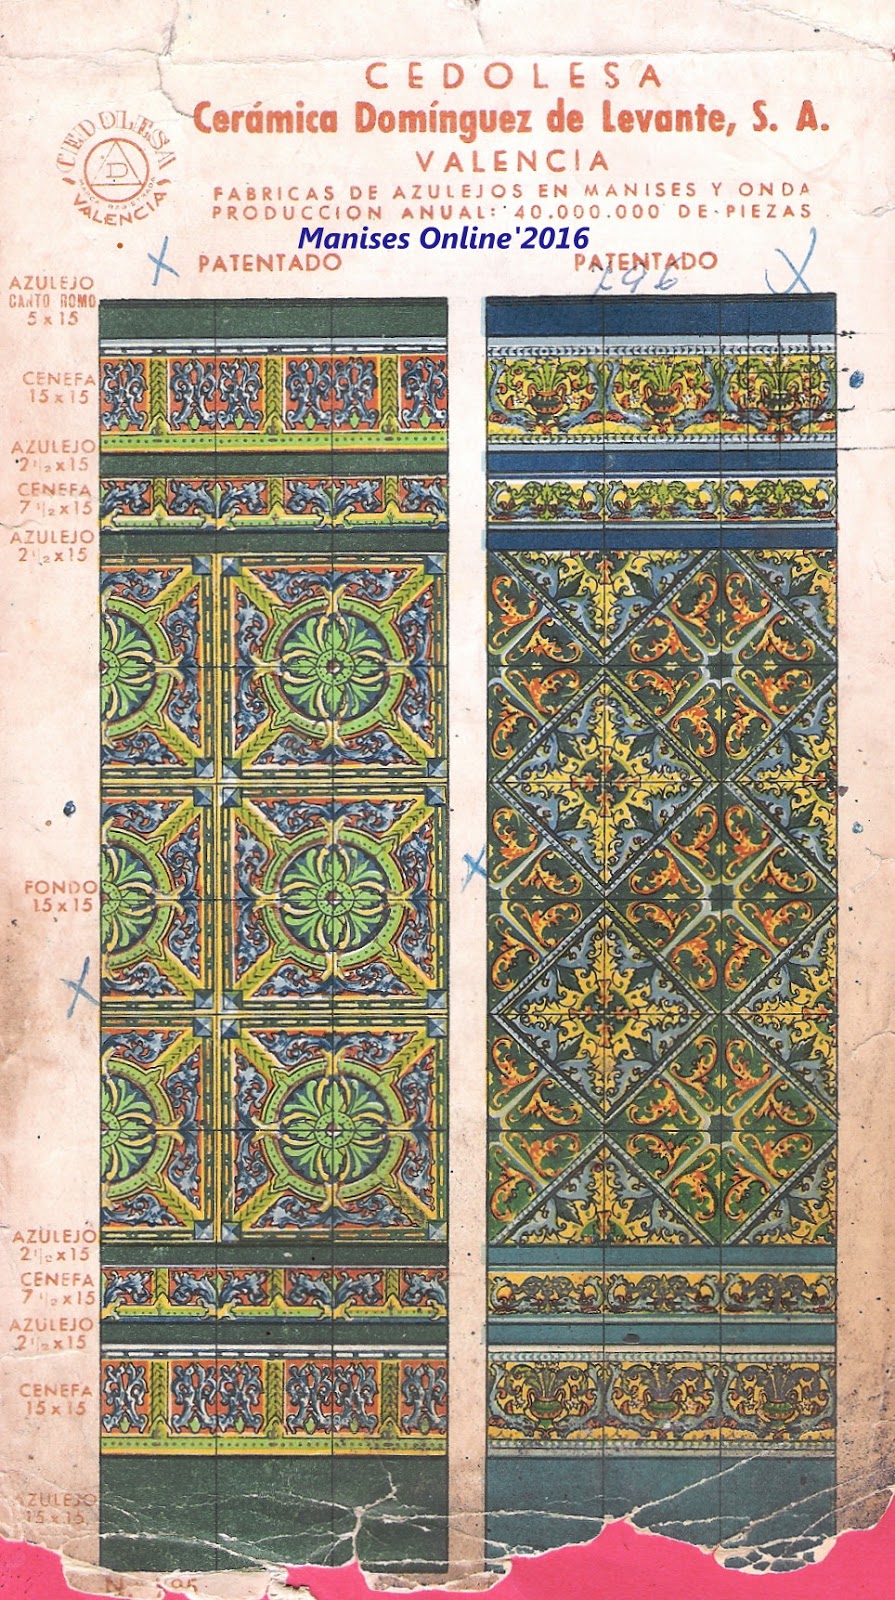 CEDOLESA
Cerámica Domínguez de Levante, S. A.
VALENCIA
FABRICAS DE AZULEJOS EN MANISES Y ONDA
PRODUCCION ANUAL: 40.000.000 DE PIEZAS
CEDOLESA
D
MARCA REGISTRADA
VALENCIA
Manises Online'2016
PATENTADO
PATENTADO
796
AZULEJO
CANTO ROMO
5 x 15
CENEFA
15 x 15
AZULEJO
2 1/2 x 15
CENEFA
7 1/2 x 15
AZULEJO
2 1/2 x 15
FONDO
15 x 15
AZULEJO
2 1/2 x 15
CENEFA
7 1/2 x 15
AZULEJO
2 1/2 x 15
CENEFA
15 x 15
AZULEJO
15 x 15